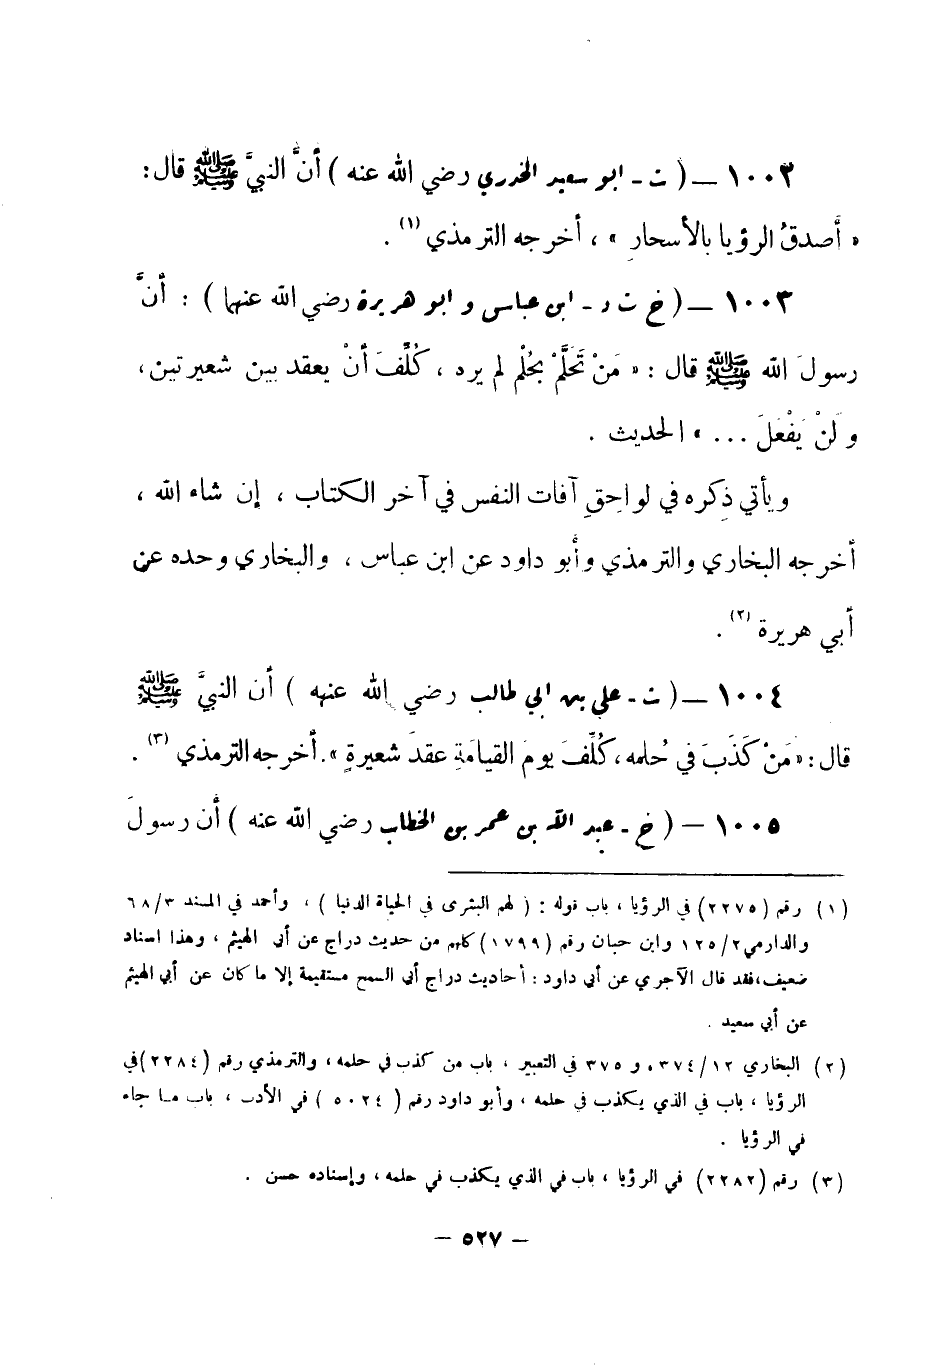 ١٠٠٢ ــ ( ت ـ ابو سعيد الخدري رضي الله عنه ) أنَّ النبيَّ ﷺ قال:
« أَصدقُ الرؤيا بالأسحارِ » ، أخرجه الترمذي (١) .
١٠٠٣ ــ ( خ ت د ـ ابن عباس و ابو هريرة رضي الله عنهما ) : أنَّ
رسولَ الله ﷺ قال : « مَنْ تَحَلَّمْ بِحُلْمٍ لم يره ، كُلِّفَ أنْ يعقد بين شعيرتين ،
ولَنْ يَفْعَلَ ... » الحديث .
ويأتي ذِكره في لواحِقِ آفات النفس في آخر الكتاب ، إن شاء الله ،
أخرجه البخاري والترمذي وأبو داود عن ابن عباس ، والبخاري وحده عن
أبي هريرة (٢) .
١٠٠٤ ــ ( ت ـ علي بن ابي طالب رضي الله عنه ) أن النبيَّ ﷺ
قال : « مَنْ كَذَبَ في حُلمه ، كُلِّفَ يومَ القيامَةِ عقدَ شعيرةٍ » . أخرجه الترمذي (٣) .
١٠٠٥ ــ ( خ ـ عبد الله بن عمر بن الخطاب رضي الله عنه ) أن رسولَ
(١) رقم (٢٢٧٥) في الرؤيا ، باب قوله : ( لهم البشرى في الحياة الدنيا ) ، وأحمد في المسند ٦٨/٣
والدارمي ١٢٥/٢ وابن حبان رقم (١٧٩٩) كلهم من حديث دراج عن أبي الهيثم ، وهذا اسناد
ضعيف، فقد قال الآجري عن أبي داود : أحاديث دراج أبي السمح مستقيمة إلا ما كان عن أبي الهيثم
عن أبي سعيد .
(٢) البخاري ٣٧٤/١٢ و ٣٧٥ في التعبير ، باب من كذب في حلمه ، والترمذي رقم (٢٢٨٤) في
الرؤيا ، باب في الذي يكذب في حلمه ، وأبو داود رقم ( ٥٠٢٤ ) في الأدب ، باب مـا جاء
في الرؤيا .
(٣) رقم (٢٢٨٢) في الرؤيا ، باب في الذي يكذب في حلمه ، وإسناده حسن .
– ٥٢٧ –